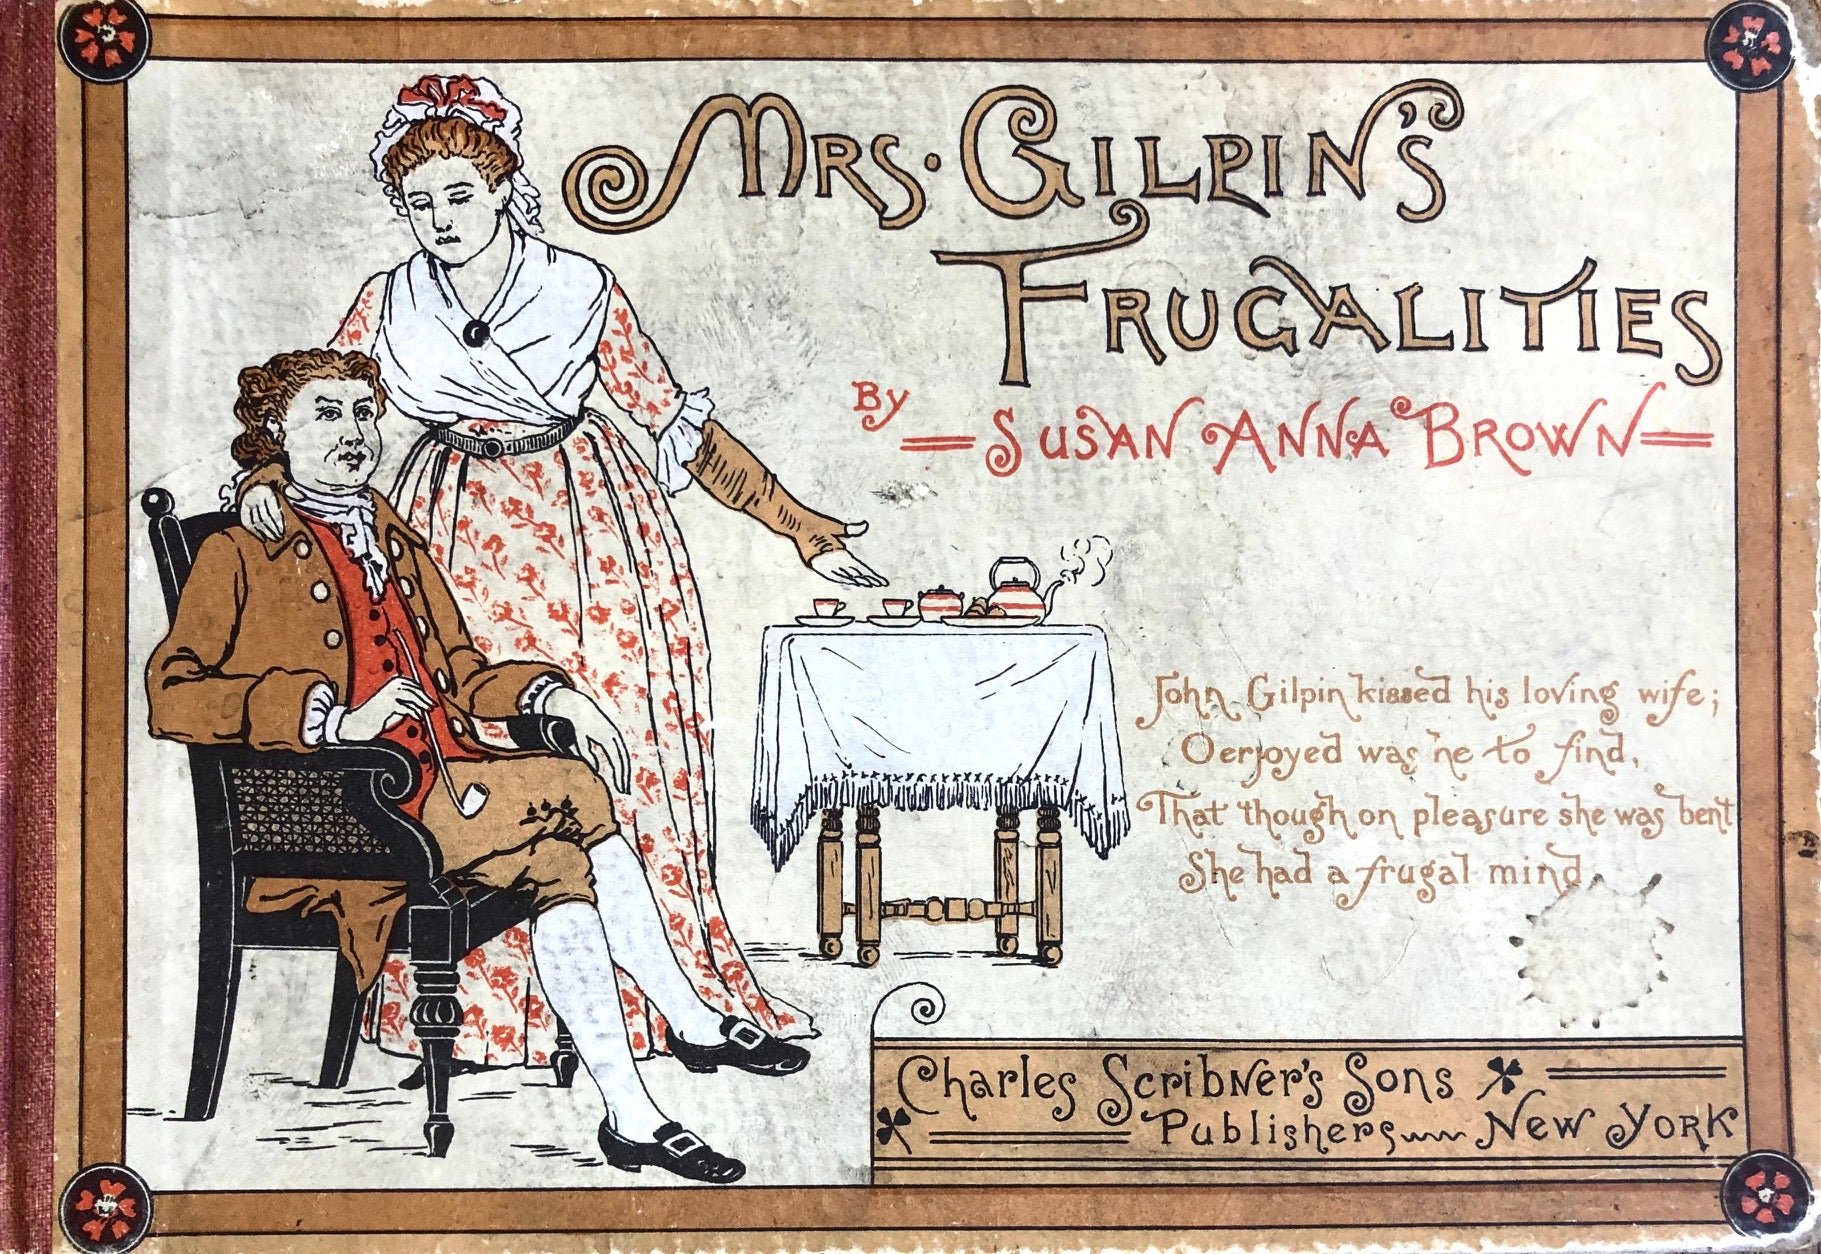 Mrs. Gilpin's
Frugalities
By
Susan Anna Brown
John Gilpin kissed his loving wife;
Oerjoyed was he to find,
That though on pleasure she was bent
She had a frugal mind
Charles Scribner's Sons
Publishers New York